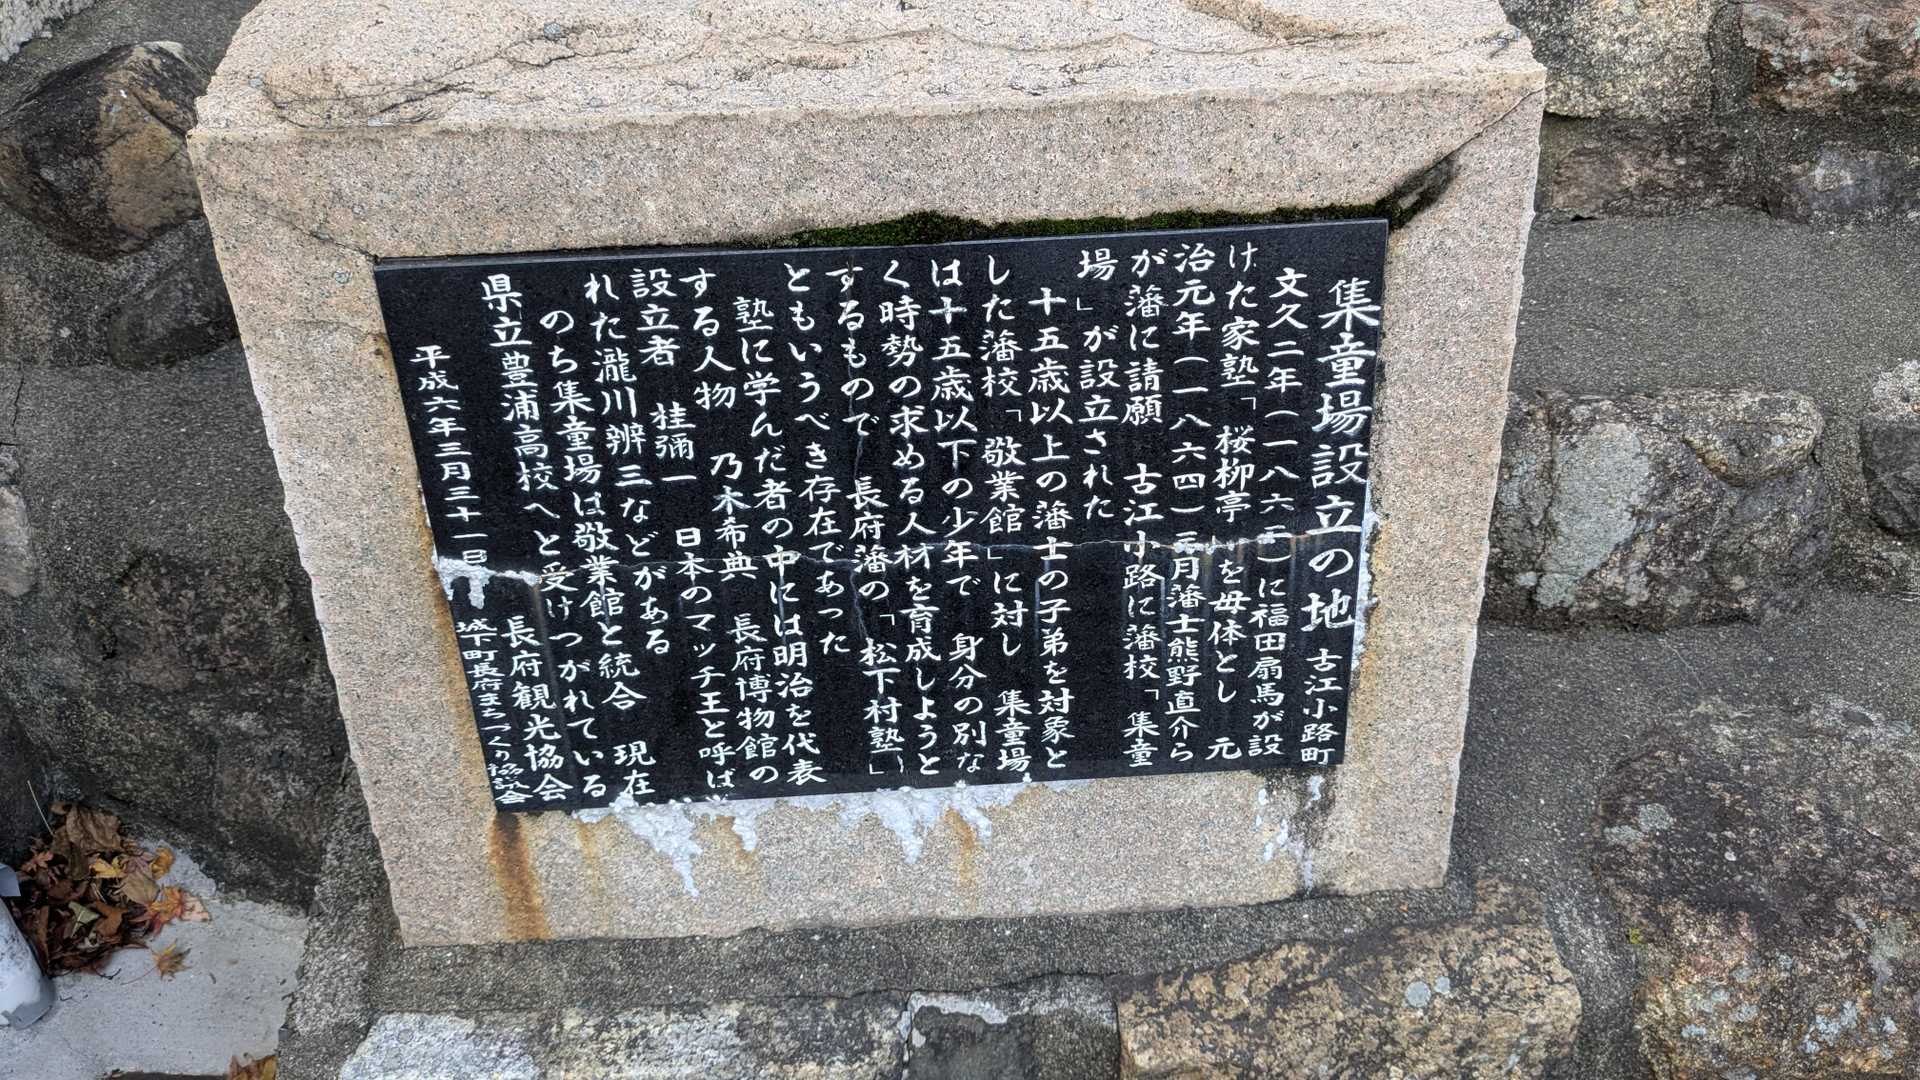 集童場設立の地 古江小路町
文久二年（一八六二）に福田扇馬が設
けた家塾「桜柳亭」を母体とし 元
治元年（一八六四）二月藩士熊野直介ら
が藩に請願 古江小路に藩校「集童
場」が設立された
十五歳以上の藩士の子弟を対象と
した藩校「敬業館」に対し 集童場
は十五歳以下の少年で 身分の別な
く時勢の求める人材を育成しようと
するもので 長府藩の「松下村塾」
ともいうべき存在であった
塾に学んだ者の中には明治を代表
する人物 乃木希典 長府博物館の
設立者 桂彌一 日本のマッチ王と呼ば
れた瀧川辨三などがある
のち集童場は敬業館と統合 現在
県立豊浦高校へと受けつがれている
平成六年三月三十一日 長府観光協会
城下町長府まちづくり協議会